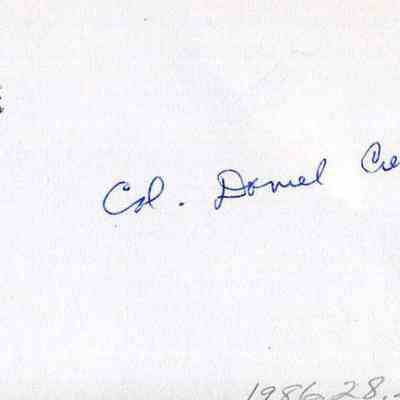 Col. Daniel Cre
1986.28.